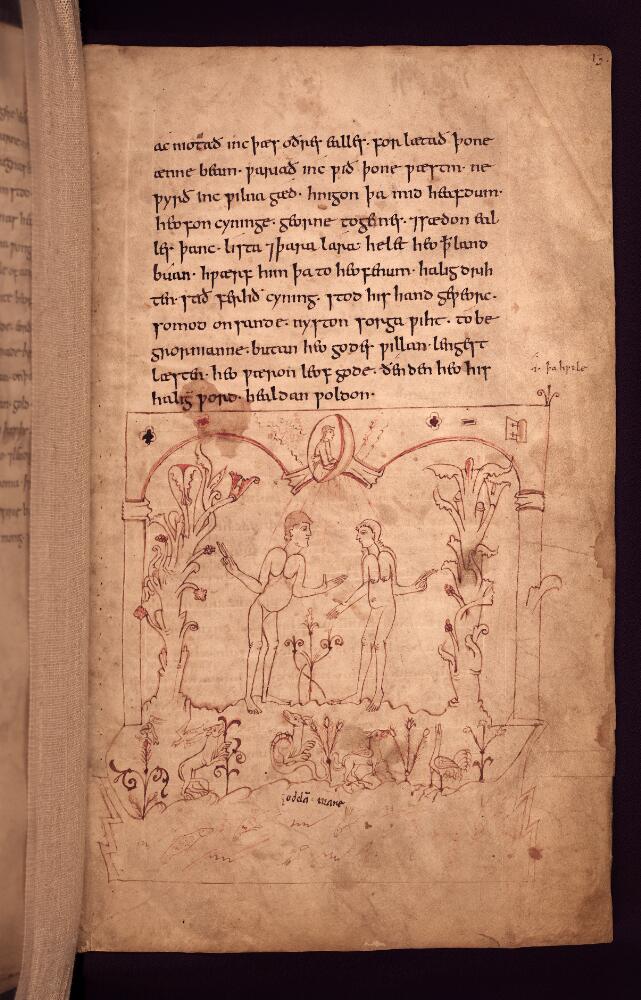 13.
ac niotað inc þæs oðres ealles· forlætað þone
ænne beam· ƿariað inc ƿið þone ƿæstm· ne
ƿyrð inc ƿilna gæd· hnigon þa mid heafdum·
heofon cyninge· georne togenes· ⁊ sædon eal
les þanc· lista ⁊ þara lara· he let heo ꝥ land
buan· hƿærf him þa to heofenum· halig drih
ten· stið ferhð cyning· stod his hand geƿeorc·
somod on sande· nyston sorga ƿiht· to be
grornianne· butan heo godes ƿillan· lengest
læsten· heo ƿæron leof gode· ðenden heo his
halig ƿord· healdan ƿoldon·
.i. þa hƿile